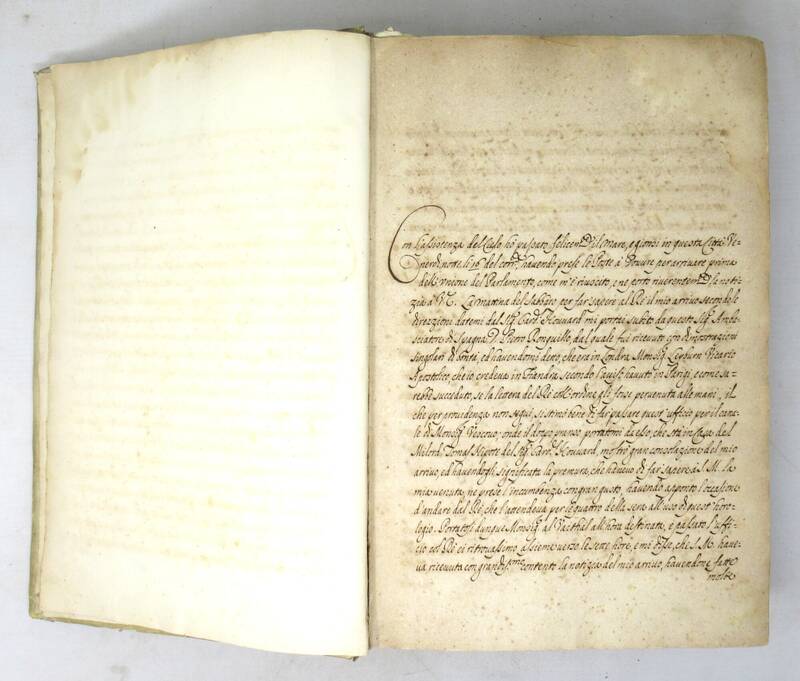 Con l'assistenza del Cielo hò passato felicem.te il mare, e gionsi in questa Città Ve-
nerdì notte li 16 del corr.te havendo prese le Poste à Douure per arrivare prima
dell'Vnione del Parlamento, come m'è riuscito, e ne porto riverentem.te la noti-
zia à V.E. La mattina del Sabbato per far sapere al Rè il mio arrivo secondo le
direzzioni datemi dal Sig.r Card. Houuard mi portai subito da questo Sig.r Amba-
sciatore di Spagna D. Pietro Ronquillo, dal quale fui ricevuto con dimostrazioni
singolari di bontà, ed havendomi detto, che era in Londra Monsig.r Leyburn Vicario
Apostolico, che io credeva in Fiandra secondo l'avviso havuto in Parigi, e come sa-
rebbe succeduto, se la lettera del Rè coll'ordine gli fosse pervenuta alle mani, il
che per providenza non seguì, si stimò bene di far passare quest'uffizio per il cana-
le di Monsig.r Vescovo; onde il dopo pranso portatomi da esso, che stà in Casa del
Milord Tomas Nepote del Sig.r Card. Houuard, mostrò gran consolazione del mio
arrivo, ed havendogli significata la premura, che havevo di far sapere à S.M. la
mia venuta, ne prese l'incumbenza con gran gusto, havendo apponto l'occasione
d'andare dal Rè, che l'attendeva per le quattro della sera all'uso di quest'horo-
logio. Portatosi dunque Monsig.r al Vaithal all'hora destinata, e passato l'uffi-
cio col Rè ci ritrovassimo assieme verso le sette hore, e mi disse, che S.M. have-
va ricevuta con grandiss.mo contento la notizia del mio arrivo, havendone fatte
molte